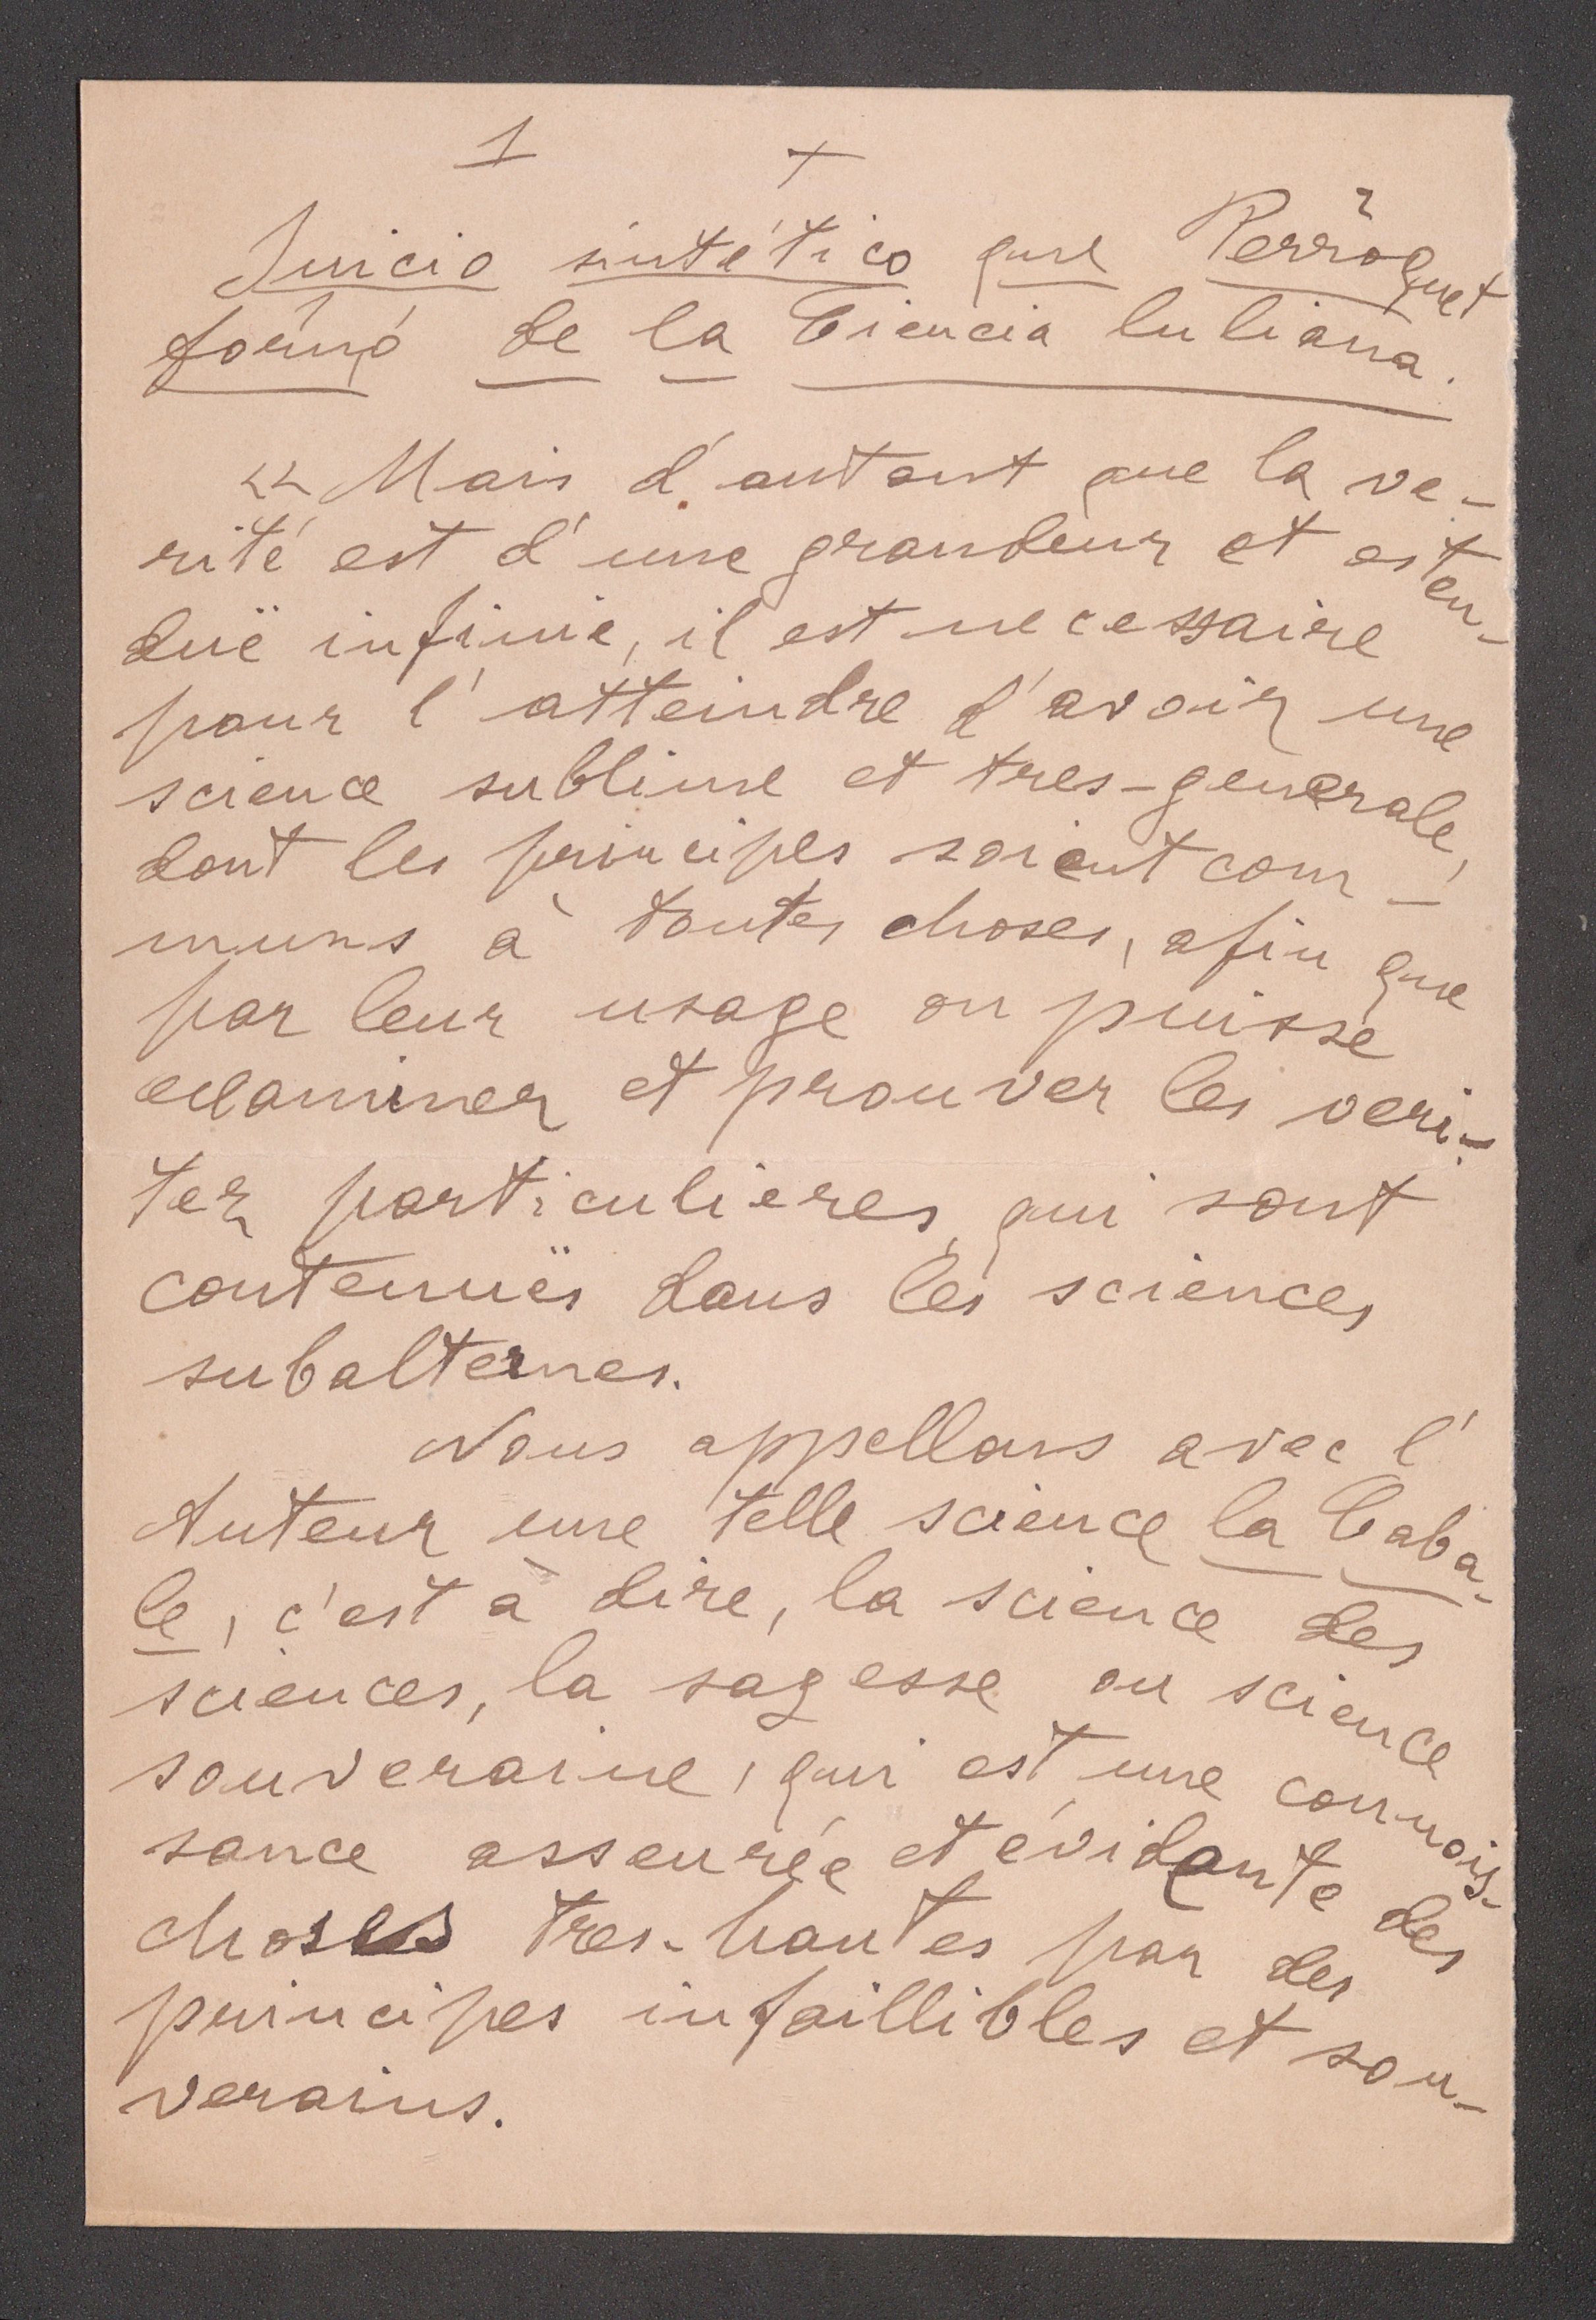 1 +
Juicio sintético que Perroquet
formó de la Ciencia luliana.
«Mais d'autant que la ve-
rité est d'une grandeur et esten-
duë infinie, il est necessaire
pour l'atteindre d'avoir une
science sublime et tres-generale,
dont les principes soient com-
muns à toutes choses, afin que
par leur usage on puisse
examiner et prouver les veri-
tez particulieres, qui sont
contenuës dans les sciences
subalternes.
Nous appellons avec l'
Auteur une telle science la Caba-
le, c'est à dire, la science des
sciences, la sagesse ou science
souveraine, qui est une connois-
sance asseurée et évidante des
choses tres-hautes par des
principes infaillibles et sou-
verains.